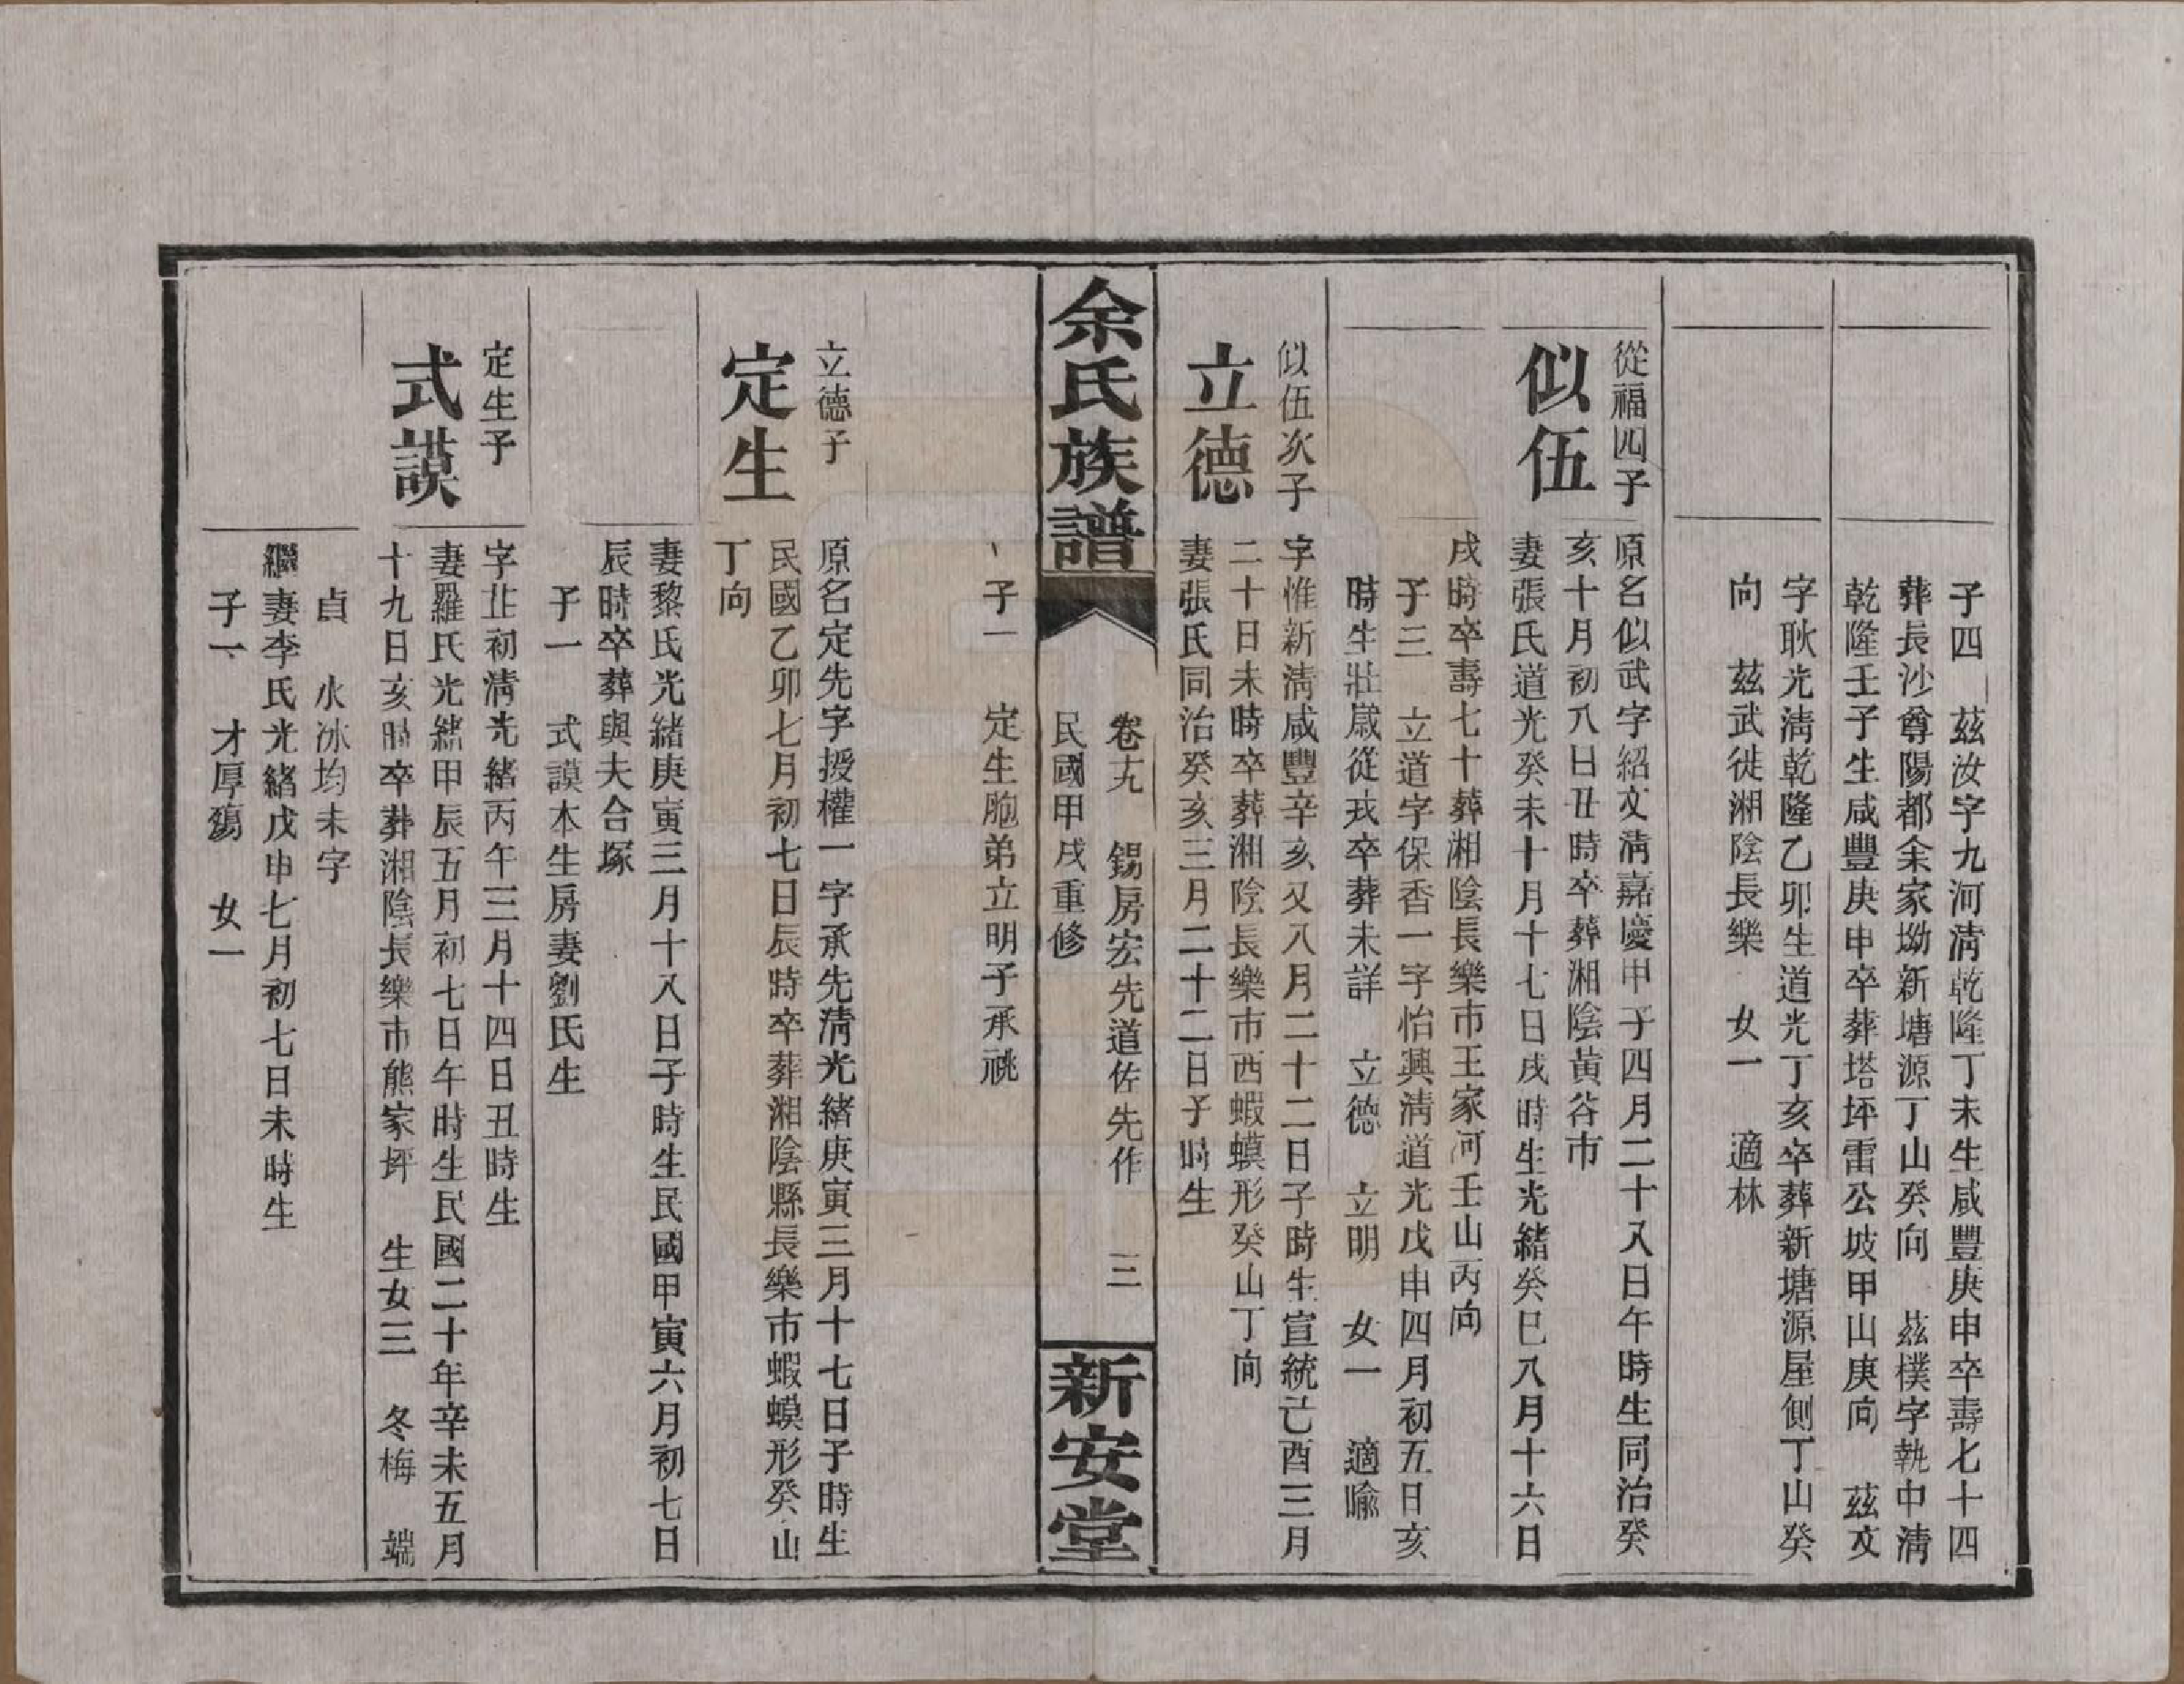 子四　茲汝字九河淸乾隆丁未生咸豐庚申卒壽七十四
葬長沙尊陽都余家坳新塘源丁山癸向　茲樸字執中淸
乾隆壬子生咸豐庚申卒葬塔坪雷公坡甲山庚向　茲文
字耿光淸乾隆乙卯生道光丁亥卒葬新塘源屋側丁山癸
向　茲武徙湘陰長樂　女一　適林
從福四子
似伍
原名似武字紹文淸嘉慶甲子四月二十八日午時生同治癸
亥十月初八日丑時卒葬湘陰黃谷市
妻張氏道光癸未十月十七日戌時生光緒癸巳八月十六日
戌時卒壽七十葬湘陰長樂市王家河壬山丙向
子三　立道字保香一字怡興淸道光戊申四月初五日亥
時生壯歲從戎卒葬未詳　立德　立明　女一　適喻
似伍次子
立德
字惟新淸咸豐辛亥又八月二十二日子時生宣統己酉三月
二十日未時卒葬湘陰長樂市西蝦蟆形癸山丁向
妻張氏同治癸亥三月二十二日子時生
余氏族譜
卷十九　錫房宏先道佐先作　三
民國甲戌重修
新安堂
子一　定生胞弟立明子承祧
立德子
定生
原名定先字授權一字承先淸光緒庚寅三月十七日子時生
民國乙卯七月初七日辰時卒葬湘陰縣長樂市蝦蟆形癸山
丁向
妻黎氏光緒庚寅三月十八日子時生民國甲寅六月初七日
辰時卒葬與夫合塚
子一　式謨本生房妻劉氏生
定生子
式謨
字芷初淸光緒丙午三月十四日丑時生
妻羅氏光緒甲辰五月初七日午時生民國二十年辛未五月
十九日亥時卒葬湘陰長樂市熊家坪　生女三　冬梅　端
貞　水冰均未字
繼妻李氏光緒戊申七月初七日未時生
子一　才厚殤　女一